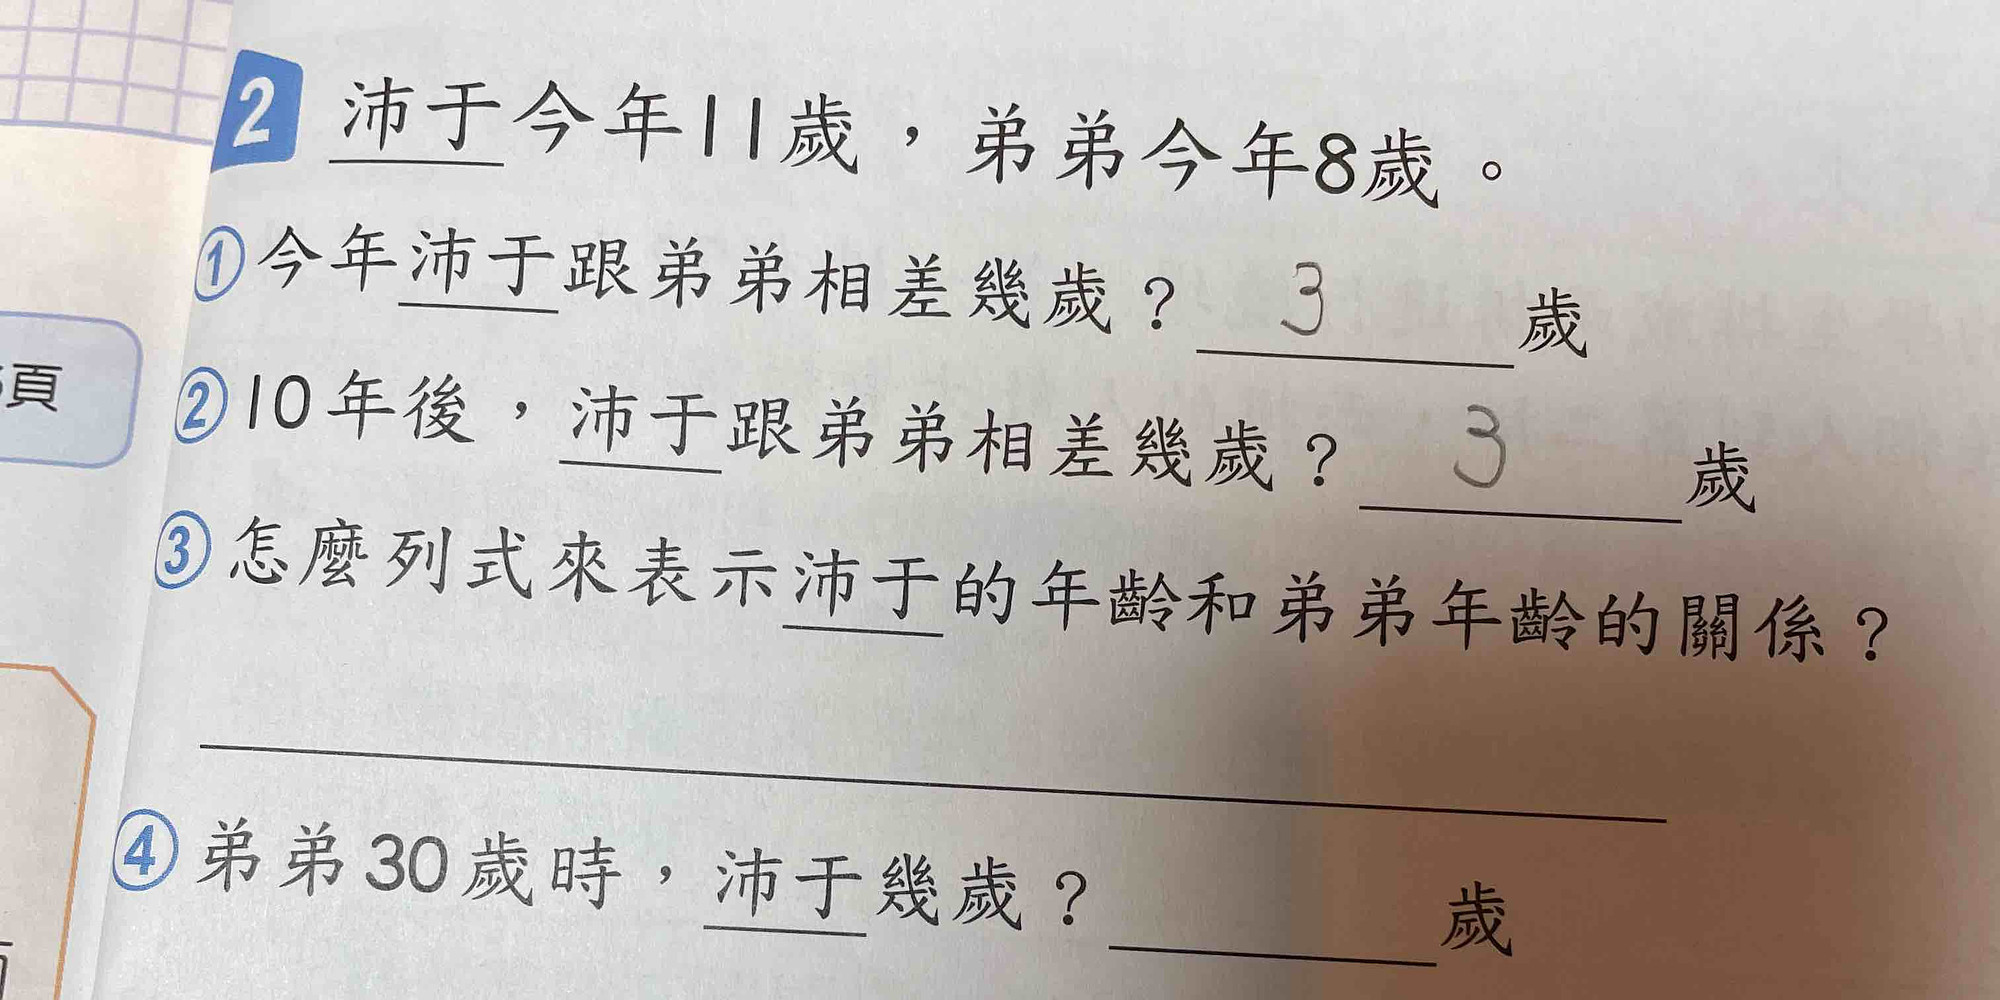 2 沛于今年11歲，弟弟今年8歲。
①今年沛于跟弟弟相差幾歲？ 3 歲
頁
②10年後，沛于跟弟弟相差幾歲？ 3 歲
③怎麼列式來表示沛于的年齡和弟弟年齡的關係？
④弟弟30歲時，沛于幾歲？ 歲